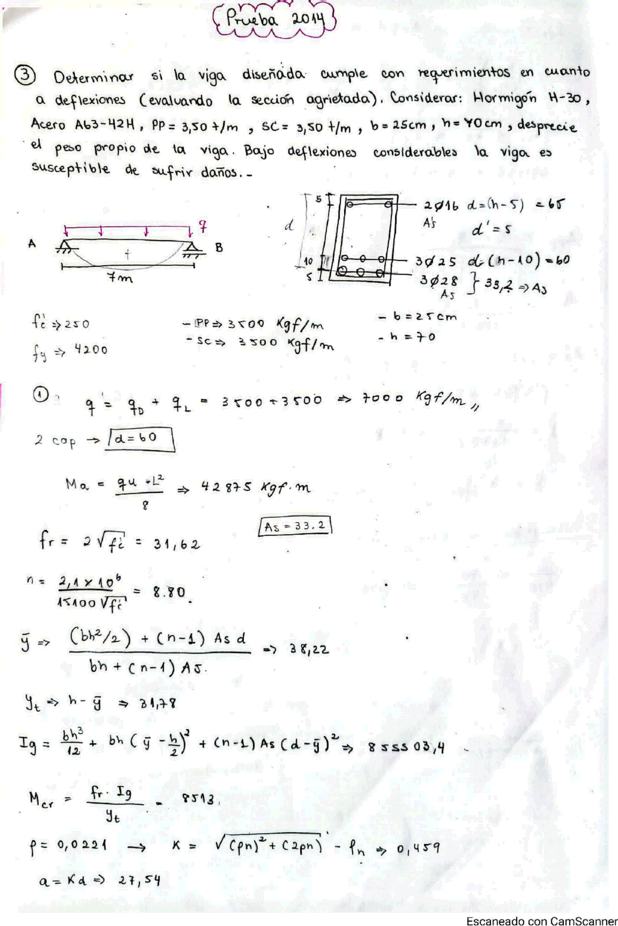 Prueba 2014
③ Determinar si la viga diseñada cumple con requerimientos en cuanto
a deflexiones (evaluando la sección agrietada). Considerar: Hormigón H-30,
Acero A63-42H, PP = 3,50 t/m, SC = 3,50 t/m, b = 25cm, h = 70cm, desprecie
el peso propio de la viga. Bajo deflexiones considerables la viga es
susceptible de sufrir daños.-
q
A B
+
7m
d
5
10
5
2Ø16 d=(h-5) = 65
A's d' = 5
3Ø25 d-(h-10)=60
3Ø28 } 33,2 => As
As
f'c => 250
fy => 4200
- PP => 3500 Kgf/m
- SC => 3500 Kgf/m
- b = 25cm
- h = 70
① q = qD + qL = 3500 + 3500 => 7000 Kgf/m //
2 cap → d = 60
Ma = qu * L² / 8 => 42875 Kgf·m
As = 33.2
fr = 2√f'c = 31,62
n = 2,1 x 10⁶ / 15100 √f'c = 8.80.
ȳ => (bh²/2) + (n-1) As d / bh + (n-1) As. => 38,22
yt => h - ȳ => 31,78
Ig = bh³/12 + bh (ȳ - h/2)² + (n-1) As (d-ȳ)² => 855503,4
Mcr = fr · Ig / yt = 8513.
ρ = 0,0221 → K = √(ρn)² + (2ρn) - ρn => 0,459
a = Kd => 27,54
Escaneado con CamScanner